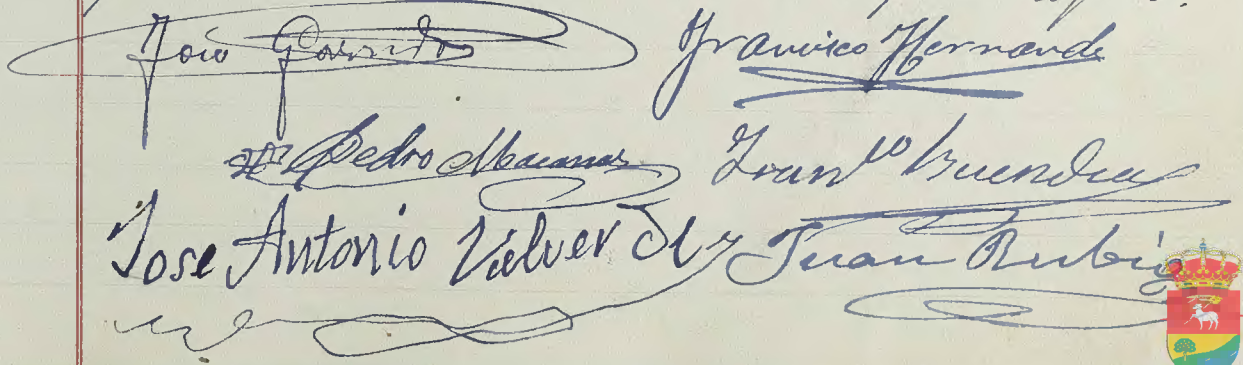 José Garrido Francisco Hernande
Pedro Macanas Fran^co Buendia
Jose Antonio Valverde y Juan Rubio